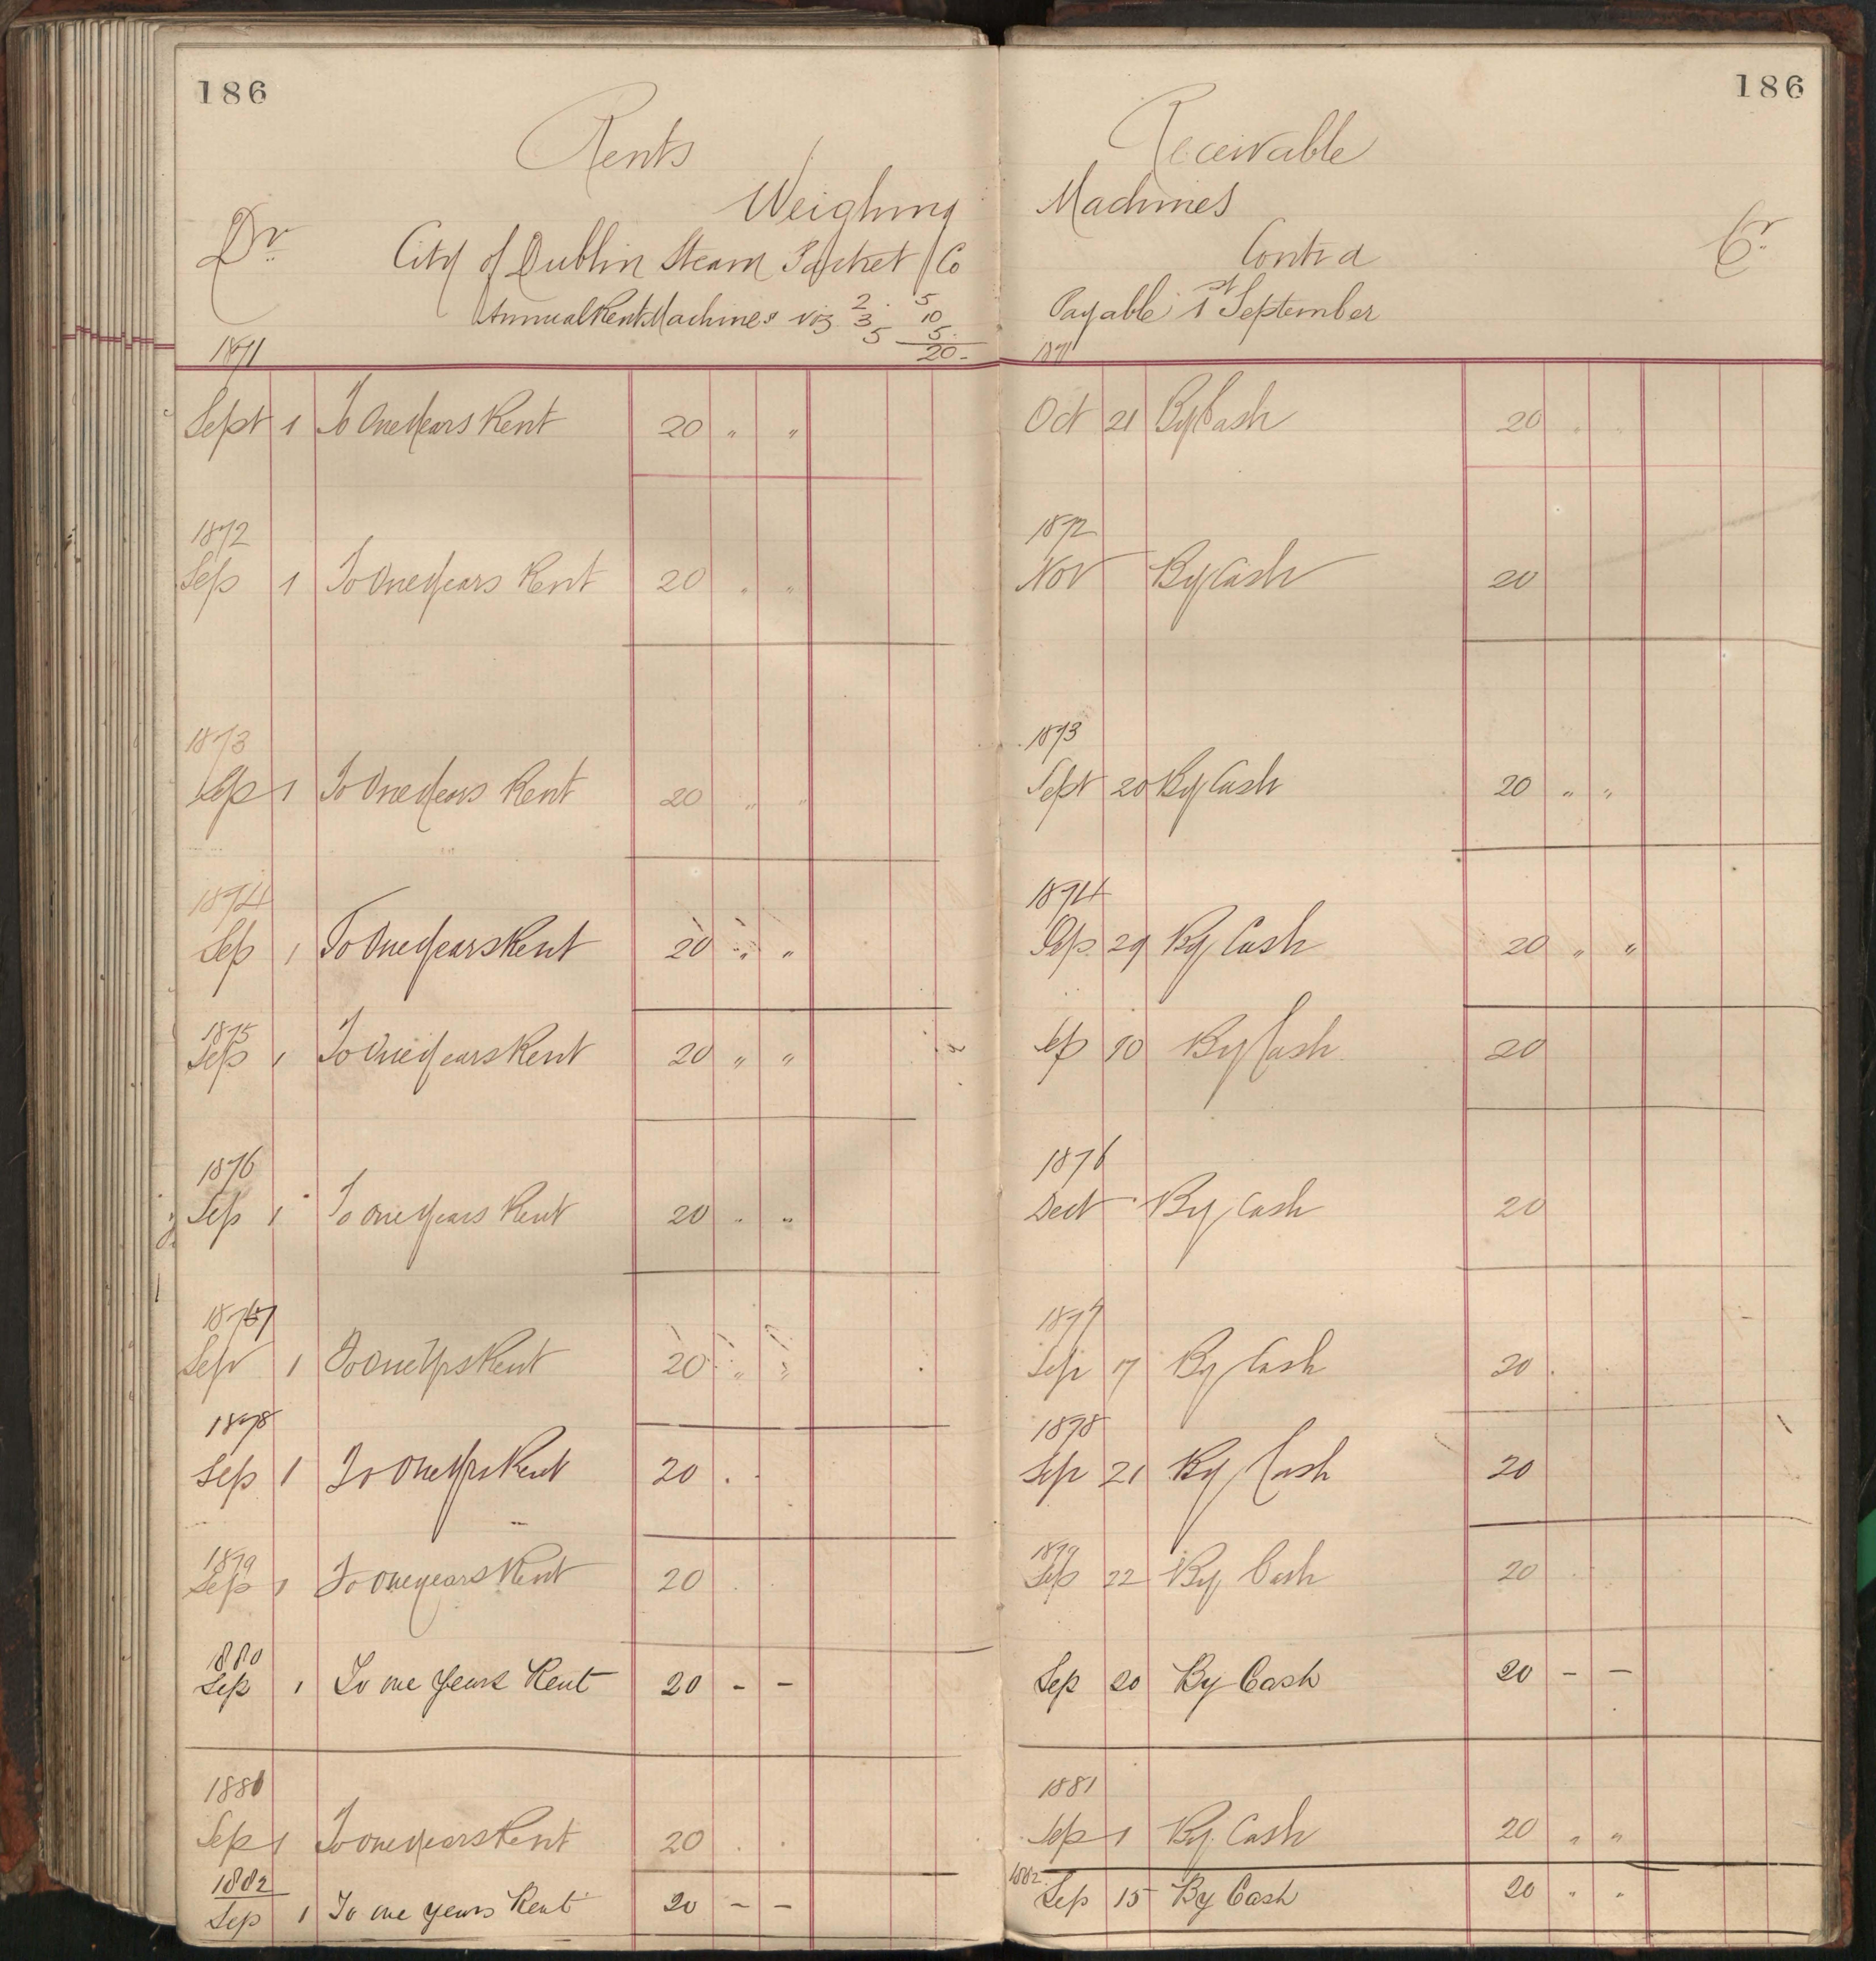 186
Rents
Weighing
Dr.
City of Dublin Steam Packet Co
Annual Rent Machines viz 2 . 5
3 10
5 5
20 -
1871
Sept 1 To One Years Rent 20 " "
1872
Sep 1 To One Years Rent 20 " "
1873
Sep 1 To One Years Rent 20 " "
1874
Sep 1 To One Years Rent 20 " "
1875
Sep 1 To One Years Rent 20 " "
1876
Sep 1 To one Years Rent 20 " "
1877
Sep 1 To One Yrs Rent 20 " "
1878
Sep 1 To One Yrs Rent 20 . .
1879
Sep 1 To one years Rent 20 .
880
Sep 1 To one years Rent 20 - -
1881
Sep 1 To one years Rent 20 . .
1882
Sep 1 To one years Rent 20 - -
186
Receivable
Machines
Contra
Cr.
Payable 1st September
1871
Oct 21 By Cash 20 " "
1872
Nov By Cash 20
1873
Sept 20 By Cash 20 " "
1874
Sep 29 By Cash 20 " "
Sep 10 By Cash 20
1876
Dect By Cash 20
1877
Sep 17 By Cash 20 .
1878
Sep 21 By Cash 20
1879
Sep 22 By Cash 20
Sep 20 By Cash 20 - -
1881
Sep 1 By Cash 20 " "
1882
Sep 15 By Cash 20 " "